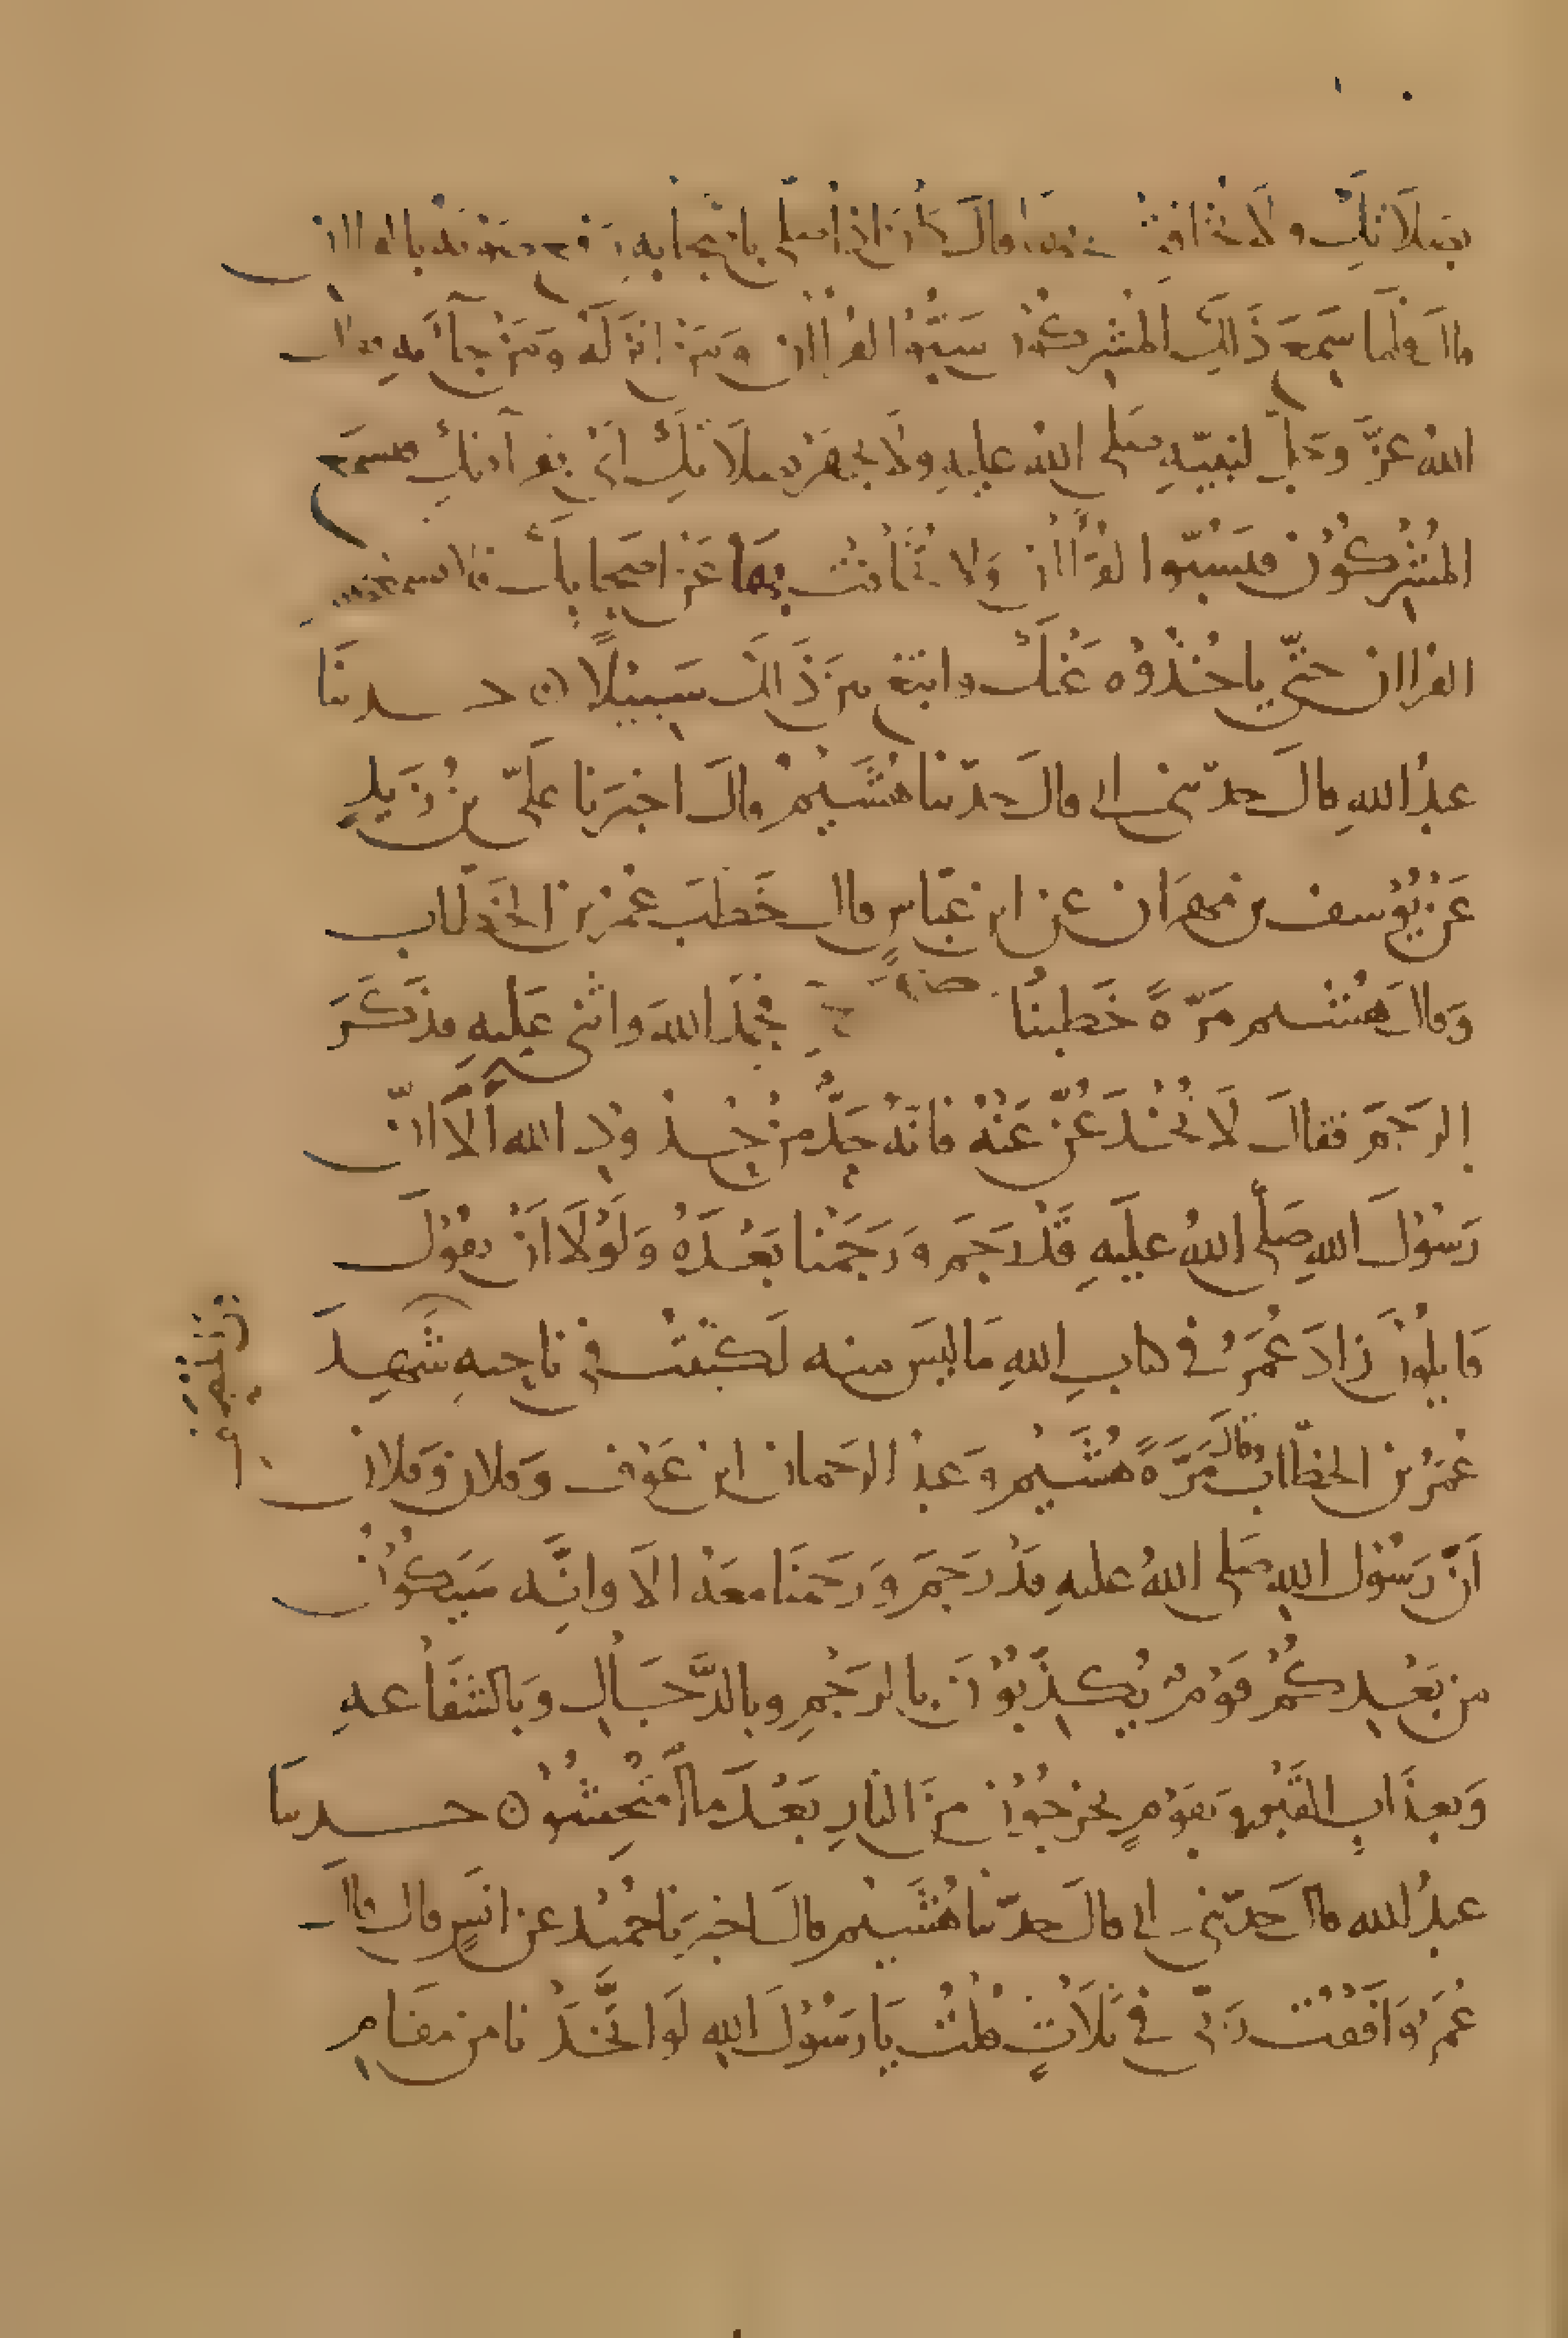 بصلاتك ولا تخافت بها قال كان اذا صلى باصحابه رفع صوته بالقراان
قال فلما سمع ذلك المشركون سبوا القراان ومن انزله ومن جآء به فقال
الله عز وجل لنبيه صلى الله عليه ولا تجهر بصلاتك اى بقرآتك فيسمع
المشركون فيسبوا القراان ولا تخافت بها عن اصحابك فلا تسمعهم
القراان حتى ياخذوه عنك وابتغ بين ذلك سبيلا ن حدثنا
عبد الله قال حدثنى ابى قال حدثنا هشيم قال اخبرنا على بن زيد
عن يوسف بن مهران عن ابن عباس قال خطب عمر بن الخطاب
وقال هشيم مرة خطبنا فحمد الله واثنى عليه فذكر
الرجم فقال لا تخدعن عنه فانه حد من حدود الله الا ان
رسول الله صلى الله عليه قد رجم ورجمنا بعده ولولا ان يقول
قايلون زاد عمر فى كتاب الله ما ليس منه لكتبت فى ناحيه شهيد
من المصحف
عمر بن الخطاب وقال مرة هشيم وعبد الرحمان ابن عوف وفلان وفلان
ان رسول الله صلى الله عليه قد رجم ورجمنا معه الا وانه سيكون
من بعدكم قوم يكذبون بالرجم وبالدجال وبالشفاعه
وبعذاب القبر وبقوم يخرجون من النار بعد ما امتحشوا ن حدثنا
عبد الله قال حدثنى ابى قال حدثنا هشيم قال اخبرنا حميد عن انس قال قال
عمر وافقت ربى فى ثلاث قلت يا رسول الله لو اتخذنا من مقام